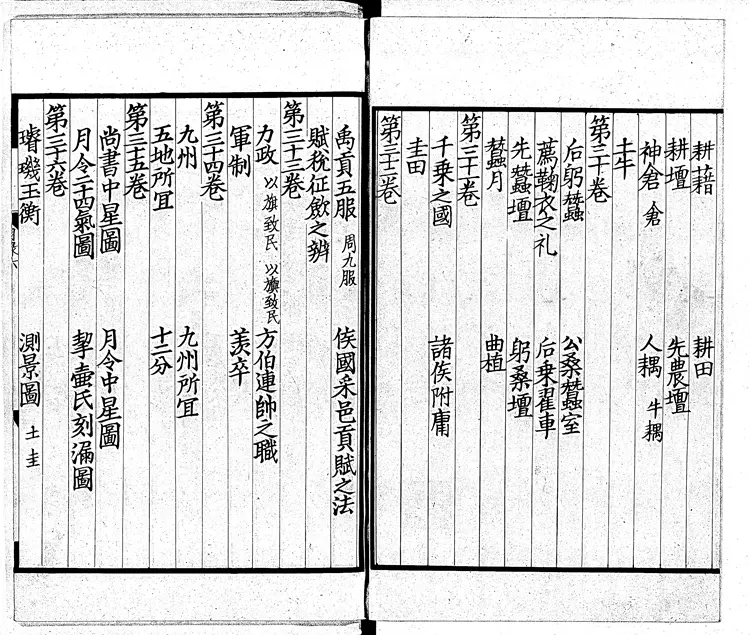 耕藉 耕田
耕壇 先農壇
神倉 倉 人耦 牛耦
土牛
第三十卷
后躬蠶 公桑蠶室
薦鞠衣之礼 后乘翟車
先蠶壇 躬桑壇
蠶月 曲植
第三十一卷
千乘之國 諸侯附庸
圭田
第三十二卷
禹貢五服 周九服 侯國采邑貢賦之法
賦稅征斂之辨
第三十三卷
力政 以旗致民 以旗致民 方伯連帥之職
軍制 羡卒
第三十四卷
九州 九州所宜
五地所宜 十二分
第三十五卷
尚書中星圖 月令中星圖
月令二十四氣圖 挈壺氏刻漏圖
第三十六卷
璿璣玉衡 測景圖 土圭